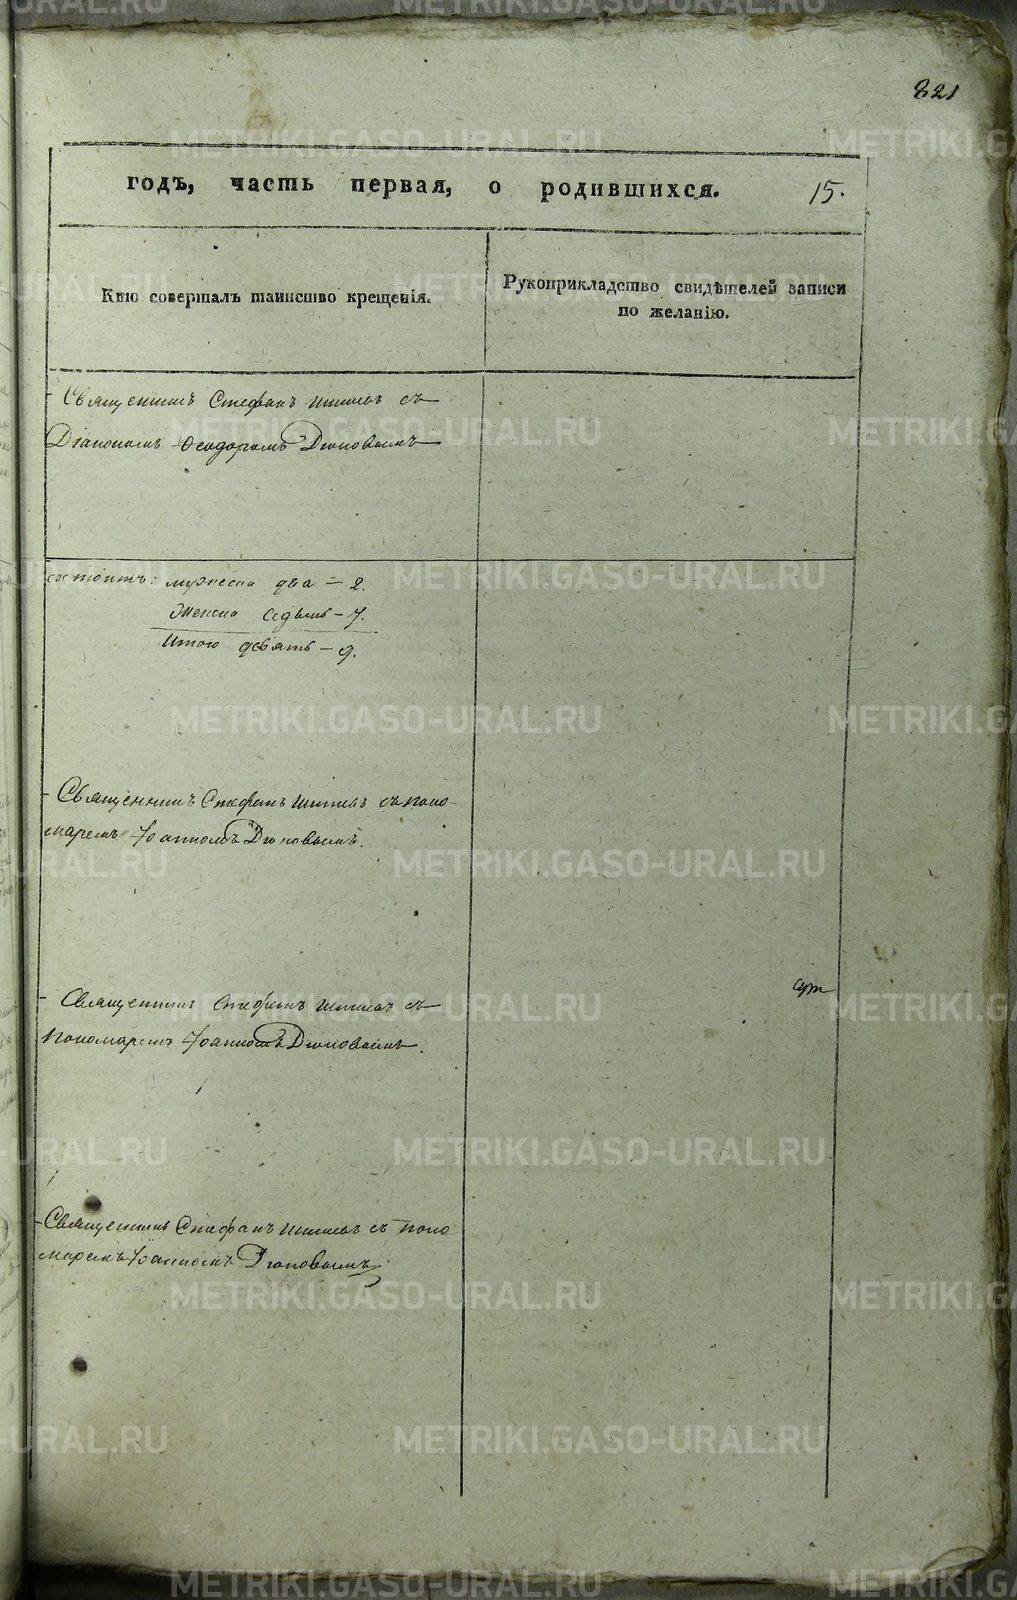 821
годъ, часть первая, о родившихся. 15.
Кто совершалъ таинство крещенія.
Рукоприкладство свидѣтелей записи
по желанію.
Священникъ Стефанъ съ
Діакономъ Ѳеодоромъ
состоитъ: мужеска два = 2.
Женска седьмъ - 7.
Итого девять - 9.
Священникъ Стефанъ съ поно-
маремъ Іоанномъ
Священникъ Стефанъ съ
пономаремъ Іоанномъ
Священникъ Стефанъ съ поно
маремъ Іоанномъ
METRIKI.GASO-URAL.RU